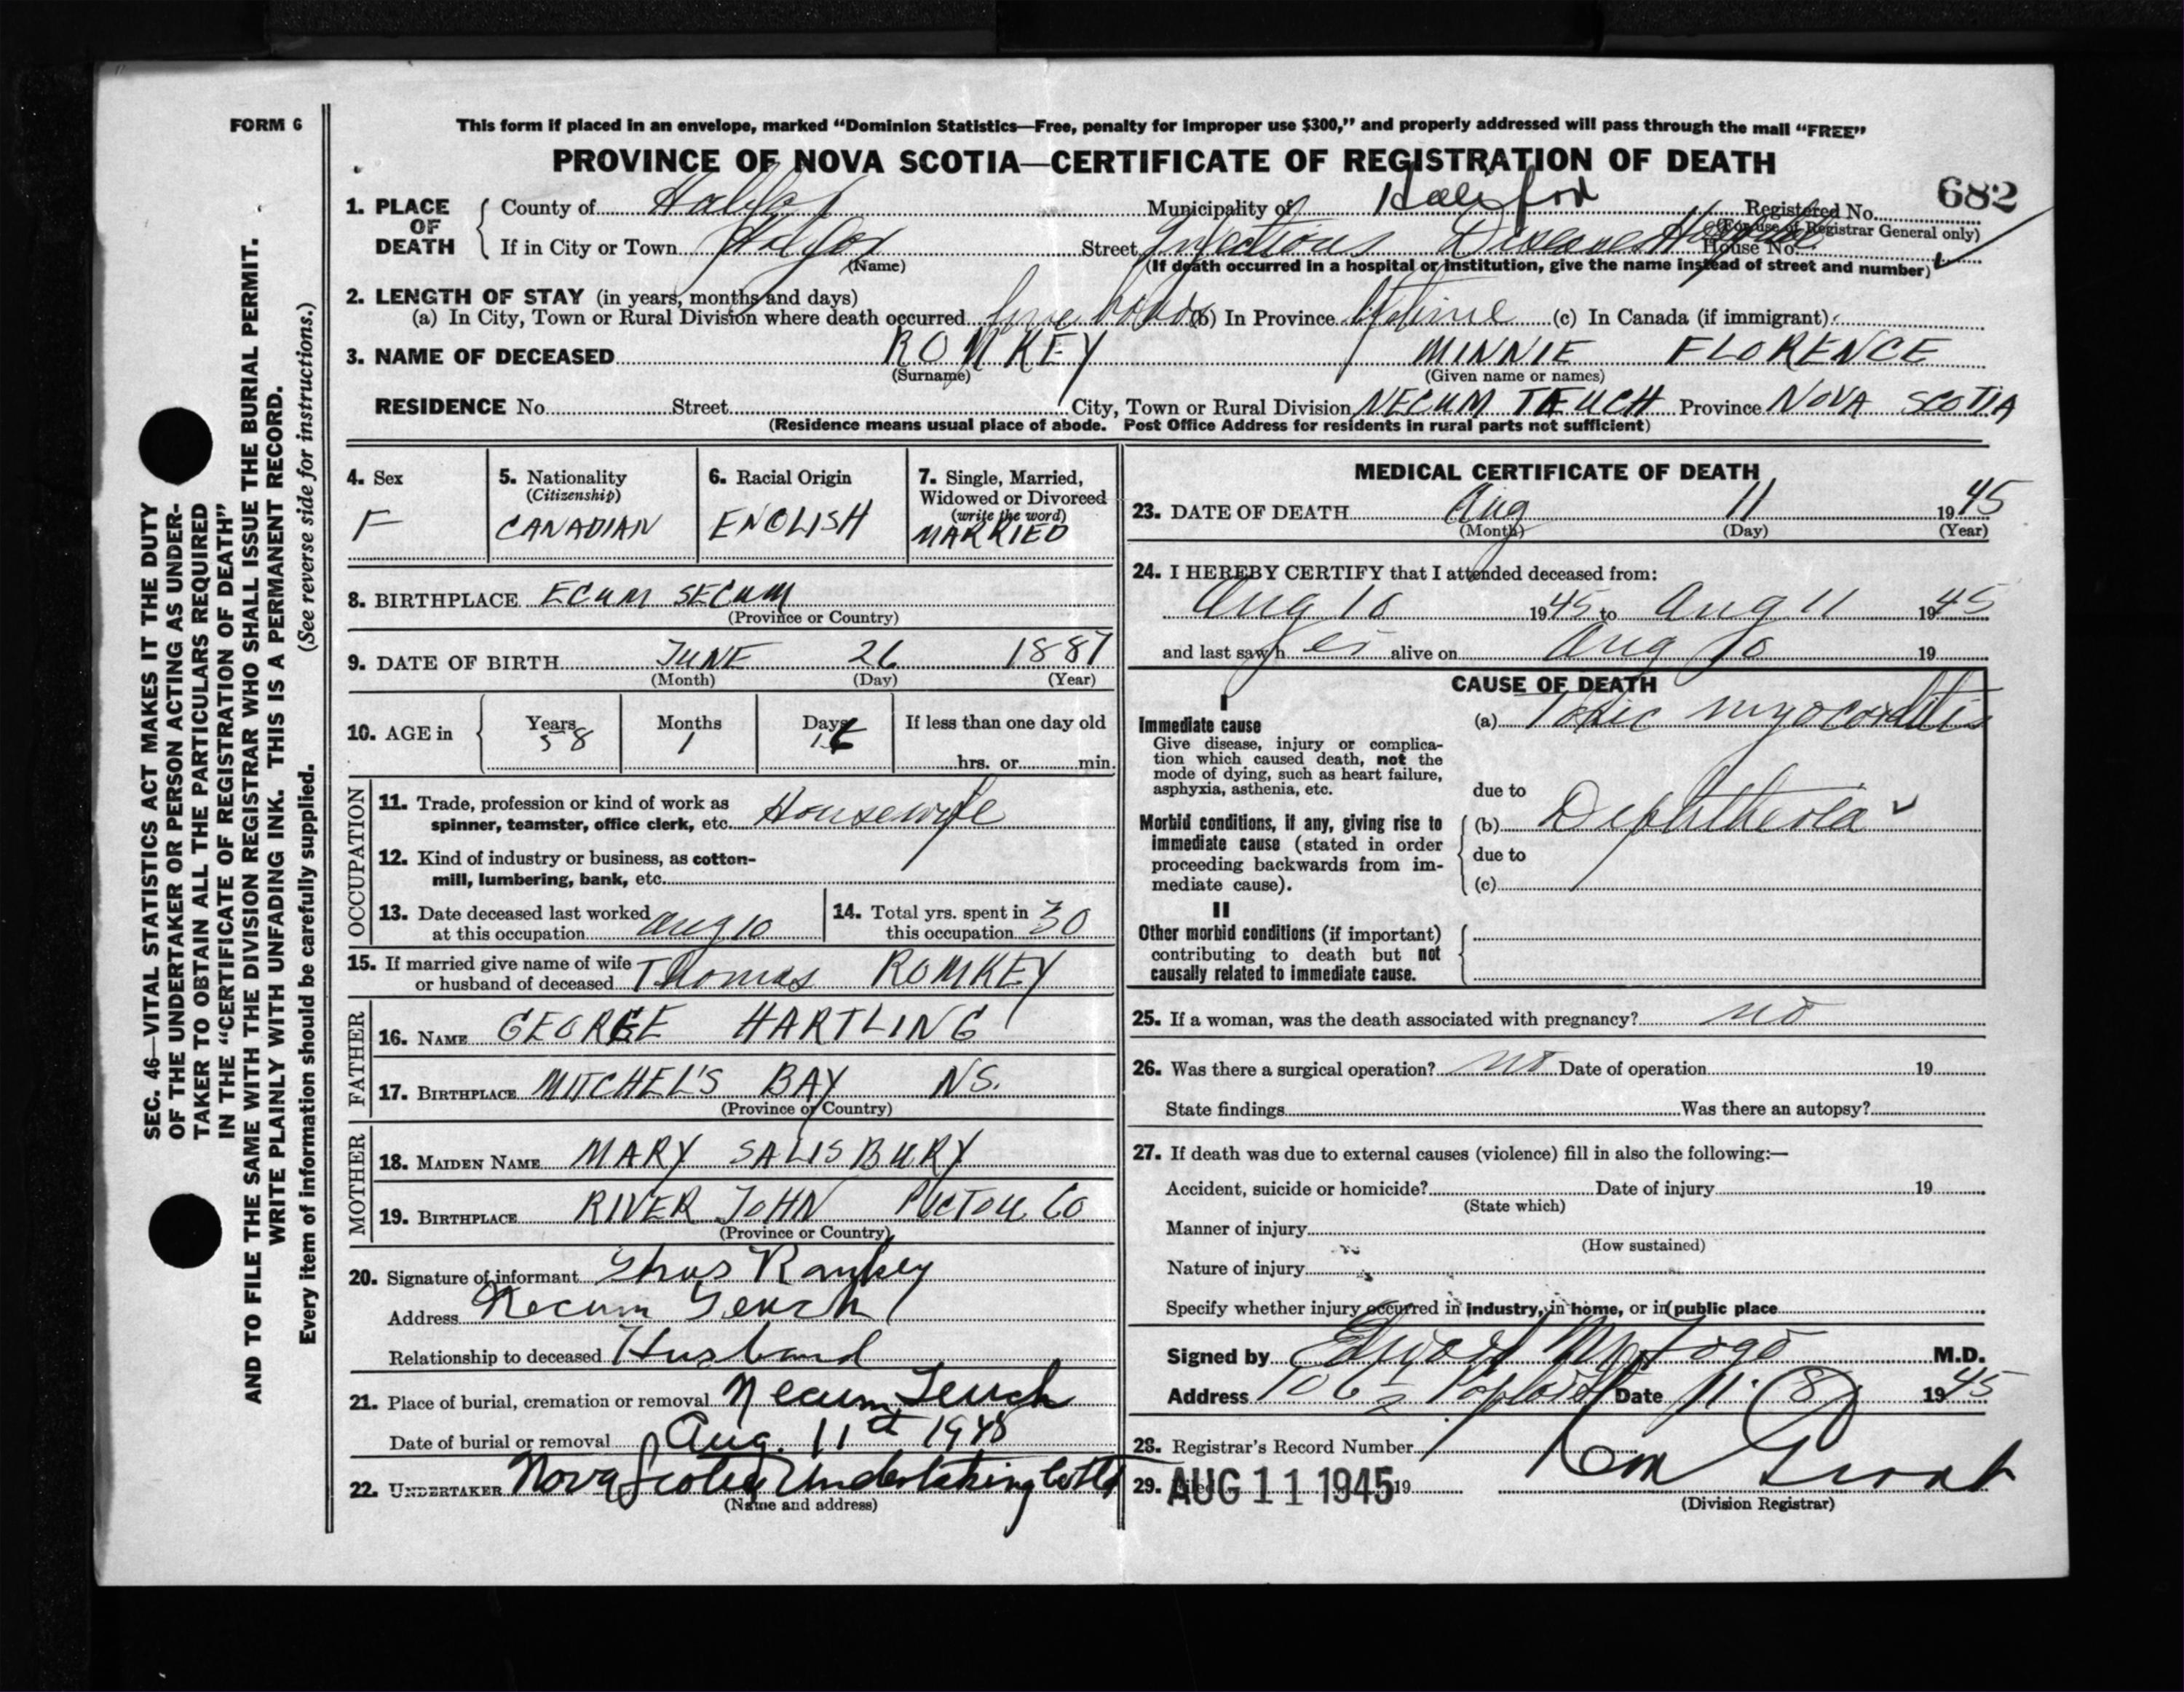 FORM 6
This form if placed in an envelope, marked “Dominion Statistics—Free, penalty for improper use $300,” and properly addressed will pass through the mail “FREE”
PROVINCE OF NOVA SCOTIA—CERTIFICATE OF REGISTRATION OF DEATH
682
1. PLACE OF DEATH
County of Halifax Municipality of Halifax Registered No.
(For use of Registrar General only)
If in City or Town Halifax Street Infectious Diseases Hospital House No.
(Name) (If death occurred in a hospital or institution, give the name instead of street and number)
2. LENGTH OF STAY (in years, months and days)
(a) In City, Town or Rural Division where death occurred five hours (b) In Province lifetime (c) In Canada (if immigrant)
3. NAME OF DECEASED ROMKEY MINNIE FLORENCE
(Surname) (Given name or names)
RESIDENCE No. Street City, Town or Rural Division NECUM TEUCH Province NOVA SCOTIA
(Residence means usual place of abode. Post Office Address for residents in rural parts not sufficient)
4. Sex
F
5. Nationality
(Citizenship)
CANADIAN
6. Racial Origin
ENGLISH
7. Single, Married,
Widowed or Divorced
(write the word)
MARRIED
8. BIRTHPLACE ECUM SECUM
(Province or Country)
9. DATE OF BIRTH JUNE 26 1887
(Month) (Day) (Year)
10. AGE in
Years Months Days If less than one day old
58 1
hrs. or min.
OCCUPATION
11. Trade, profession or kind of work as
spinner, teamster, office clerk, etc. Housewife
12. Kind of industry or business, as cotton-
mill, lumbering, bank, etc.
13. Date deceased last worked
at this occupation Aug 10
14. Total yrs. spent in
this occupation 30
15. If married give name of wife
or husband of deceased Thomas ROMKEY
FATHER
16. NAME GEORGE HARTLING
17. BIRTHPLACE MITCHEL'S BAY NS.
(Province or Country)
MOTHER
18. MAIDEN NAME MARY SALISBURY
19. BIRTHPLACE RIVER JOHN PICTOU CO
(Province or Country)
20. Signature of informant Thos Romkey
Address Necum Teuch
Relationship to deceased Husband
21. Place of burial, cremation or removal Necum Teuch
Date of burial or removal Aug. 11th 1945
22. UNDERTAKER Nova Scotia Undertaking Co Ltd
(Name and address)
MEDICAL CERTIFICATE OF DEATH
23. DATE OF DEATH Aug 11 1945
(Month) (Day) (Year)
24. I HEREBY CERTIFY that I attended deceased from:
Aug 10 1945 to Aug 11 1945
and last saw h er alive on Aug 10 19
CAUSE OF DEATH
I
Immediate cause
Give disease, injury or complica-
tion which caused death, not the
mode of dying, such as heart failure,
asphyxia, asthenia, etc.
(a) Toxic myocarditis
due to
Morbid conditions, if any, giving rise to
immediate cause (stated in order
proceeding backwards from im-
mediate cause).
(b) Diphtheria
due to
(c)
II
Other morbid conditions (if important)
contributing to death but not
causally related to immediate cause.
25. If a woman, was the death associated with pregnancy? no
26. Was there a surgical operation? no Date of operation 19
State findings Was there an autopsy?
27. If death was due to external causes (violence) fill in also the following:—
Accident, suicide or homicide? Date of injury 19
(State which)
Manner of injury
(How sustained)
Nature of injury
Specify whether injury occurred in industry, in home, or in public place
Signed by M.D.
Address Date 11. 8 1945
28. Registrar's Record Number
29. Filed AUG 11 1945 19
(Division Registrar)
SEC. 46—VITAL STATISTICS ACT MAKES IT THE DUTY
OF THE UNDERTAKER OR PERSON ACTING AS UNDER-
TAKER TO OBTAIN ALL THE PARTICULARS REQUIRED
IN THE “CERTIFICATE OF REGISTRATION OF DEATH”
AND TO FILE THE SAME WITH THE DIVISION REGISTRAR WHO SHALL ISSUE THE BURIAL PERMIT.
WRITE PLAINLY WITH UNFADING INK. THIS IS A PERMANENT RECORD.
Every item of information should be carefully supplied. (See reverse side for instructions.)